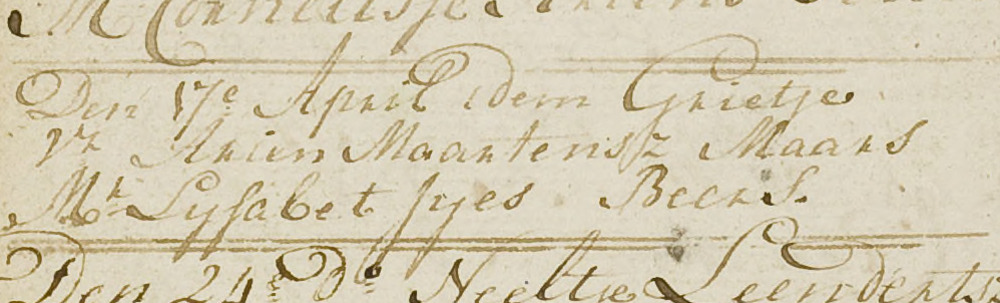 Mr Cornelisje
Den 17e April idem Grietje
Vr Arien Maartensz Maars
Mr Lysabet Jyes Beers.
Den 24e Do Neeltie Leenderts